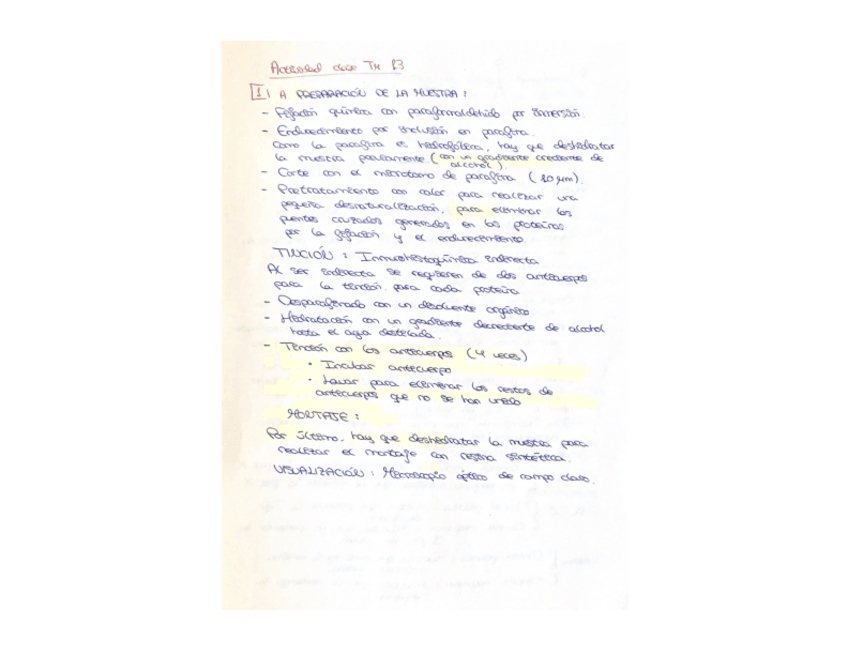 Actividad clase TM 13
1 A PREPARACIÓN DE LA MUESTRA:
- Fijación química con paraformaldehído por inmersión.
- Endurecimiento por inclusión en parafina.
Como la parafina es hidrofóbica, hay que deshidratar
la muestra previamente. (con un gradiente creciente de
alcohol).
- Corte con el microtomo de parafina (10 μm).
- Pretratamiento con calor para realizar una
pequeña desnaturalización, para eliminar los
puentes cruzados generados en las proteínas
por la fijación y el endurecimiento.
TINCIÓN: Inmunohistoquímica indirecta
Al ser indirecta se requieren de dos anticuerpos
para la tinción. para cada proteína
- Desparafinado con un disolvente orgánico
- Hidratación con un gradiente decreciente de alcohol
hasta el agua destilada.
- Tinción con los anticuerpos (4 veces)
· Incubar anticuerpo
· Lavar para eliminar los restos de
anticuerpos que no se han unido
MONTAJE:
Por último, hay que deshidratar la muestra para
realizar el montaje con resina sintética.
VISUALIZACIÓN: Microscopio óptico de campo claro.